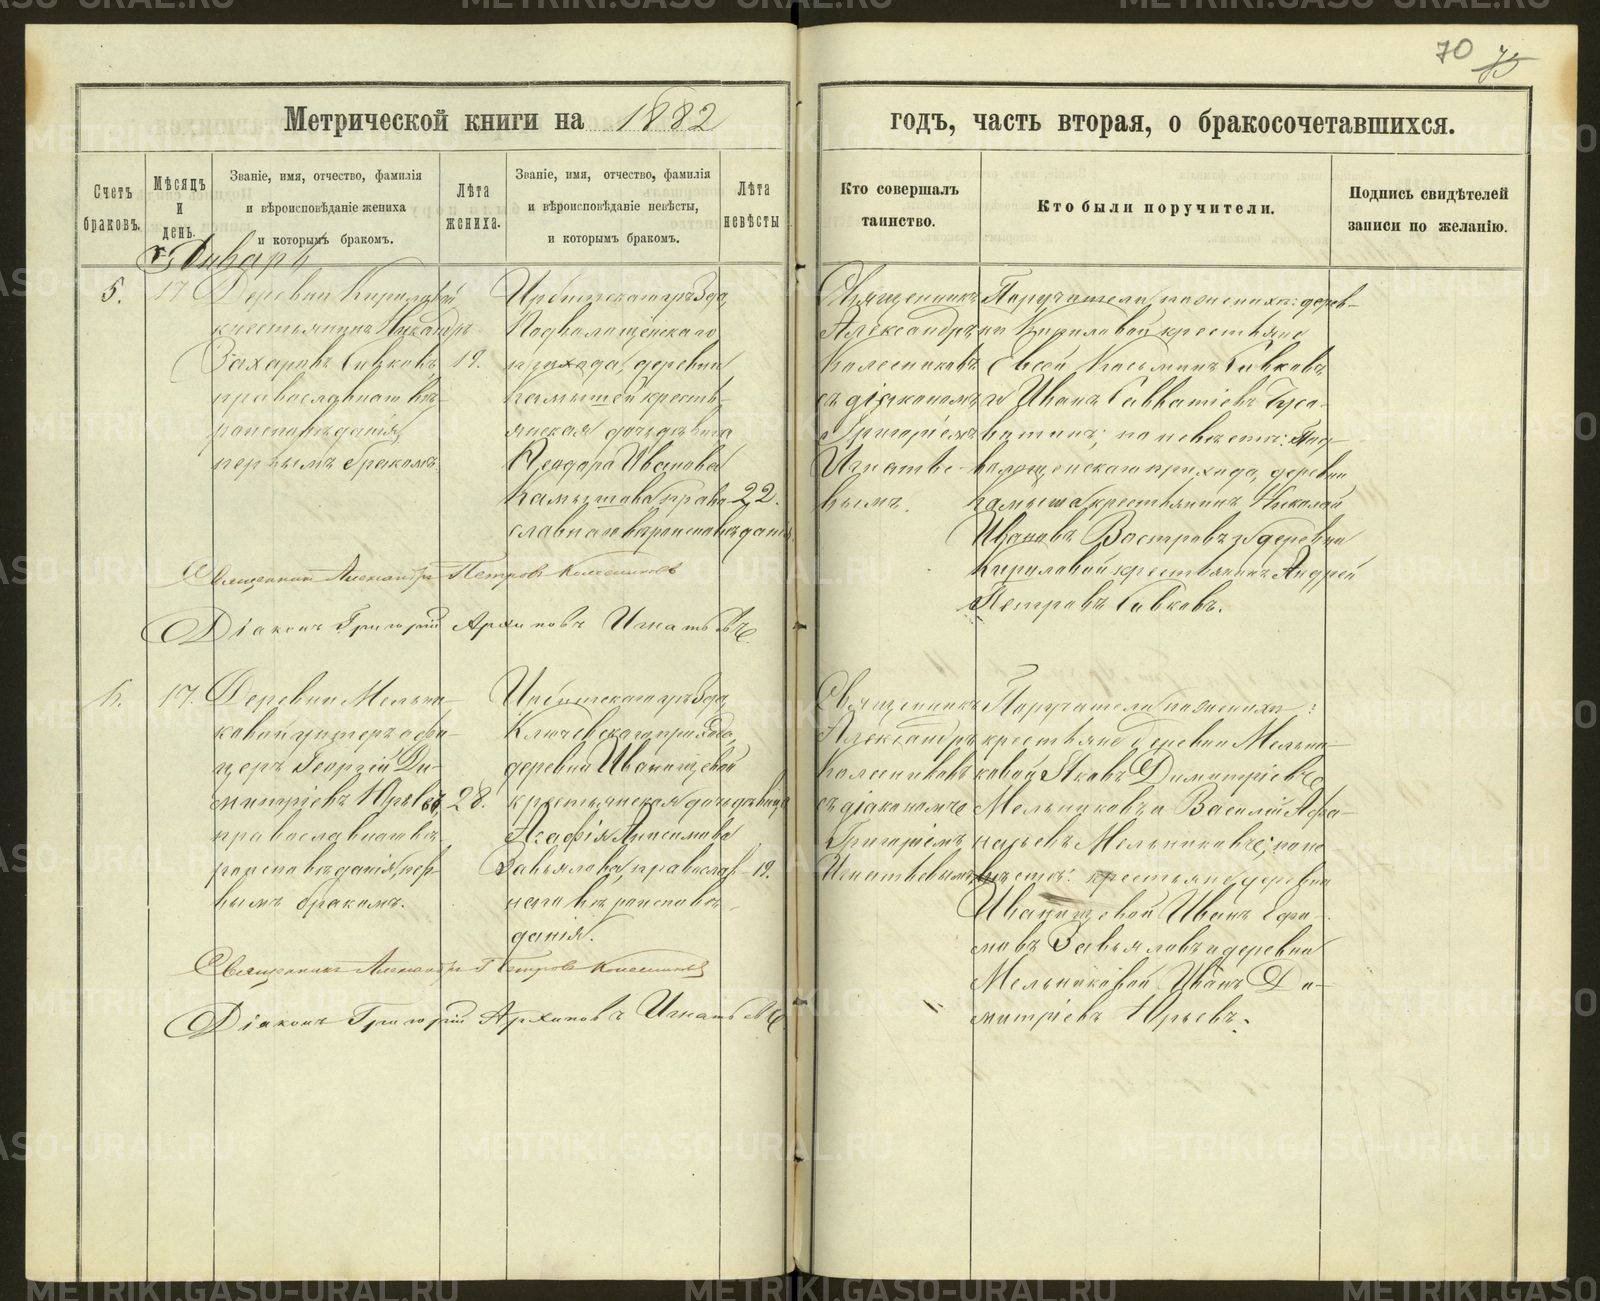 70 75
Метрической книги на 1882
годъ, часть вторая, о бракосочетавшихся.
Счетъ браковъ.
Мѣсяцъ и день.
Званіе, имя, отчество, фамилія
и вѣроисповѣданіе жениха
и которымъ бракомъ.
Лѣта жениха.
Званіе, имя, отчество, фамилія
и вѣроисповѣданіе невѣсты,
и которымъ бракомъ.
Лѣта невѣсты
Кто совершалъ
таинство.
Кто были поручители.
Подпись свидѣтелей
записи по желанію.
Январь
5.
17
Деревни Кириловой
крестьянинъ Никандръ
Захаровъ Сивковъ,
православнаго вѣ-
роисповѣданія,
первымъ бракомъ.
19.
Ирбитскаго уѣзда,
прихода, деревни
Камышей кресть-
янская дочь девица
Ивановна
Камышова право-
славнаго вѣроисповѣданія
22.
Священникъ
Александръ
Колесниковъ
съ діакономъ
Григоріемъ
Игнатье-
вымъ.
Поручители по женихѣ: дерев-
ни Кириловой крестьяне
Евсей Косьминъ Сивковъ
и Иванъ Савватіевъ Буса-
по невѣстѣ: Под-
прихода, деревни
Камыша крестьянинъ Николай
Ивановъ Востровъ и деревни
Кириловой крестьянинъ Андрей
Петровъ Сивковъ.
Священникъ Александръ Петровъ Колесниковъ
Діаконъ Григорій Архиповъ Игнатьевъ.
6.
17.
Деревни Мельни-
ковой унтеръ офи-
церъ Георгій Ди-
митріевъ Юрьевъ,
православнаго вѣ-
роисповѣданія, пер-
вымъ бракомъ.
28.
Ирбитскаго уѣзда,
Ключевскаго прихода,
деревни Иванищевой
крестьянская дочь девица
Агафія Анисимова
Завьялова, православ-
наго вѣроисповѣ-
данія.
19.
Священникъ
Александръ
Колесниковъ
съ діакономъ
Григоріемъ
Игнатьевымъ
Поручители по женихѣ:
крестьяне деревни Мельни-
ковой Яковъ Димитріевъ
Мельниковъ и Василій Афа-
насьевъ Мельниковъ; по не-
вѣстѣ: крестьяне деревни
Иванищевой Иванъ Ефи-
мовъ Завьяловъ и деревни
Мельниковой Иванъ Ди-
митріевъ Юрьевъ.
Священникъ Александръ Петровъ Колесниковъ
Діаконъ Григорій Архиповъ Игнатьевъ
METRIKI.GASO-URAL.RU